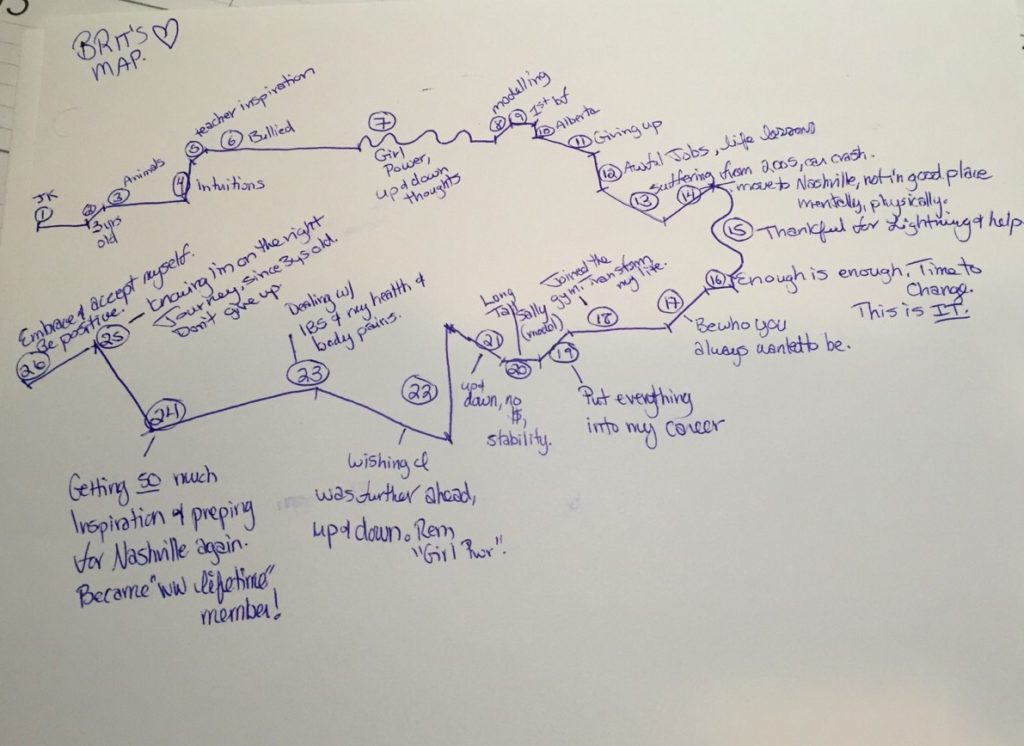 BRIT'S
MAP.
JK
1
2
3yrs
old
3
Animals
4
Intuitions
5
teacher inspiration
6
Bullied
7
Girl
Power,
up & down
thoughts
8
modelling
9
1st bf
10
Alberta
11
Giving up
12
Awful Jobs, life lessons
13
suffering from 2005, car crash.
14
move to Nashville, not in good place
mentally, physically.
15
Thankful for Lightning & help
16
Enough is enough. Time to
Change.
This is IT.
17
Be who you
always wanted to be.
18
Joined the
gym. Transform
my life.
19
Put everything
into my career
20
Long
Tall
Sally
(model)
21
up &
down, no
$,
stability.
22
wishing I
was further ahead,
up & down. Rem
"Girl Pwr".
23
Dealing w/
IBS & my health &
body pains.
24
Getting SO much
Inspiration & preping
for Nashville again.
Became "WW lifetime"
member!
25
Knowing I'm on the right
Journey, since 3yrs old.
Don't give up
26
Embrace & accept myself.
Be positive.